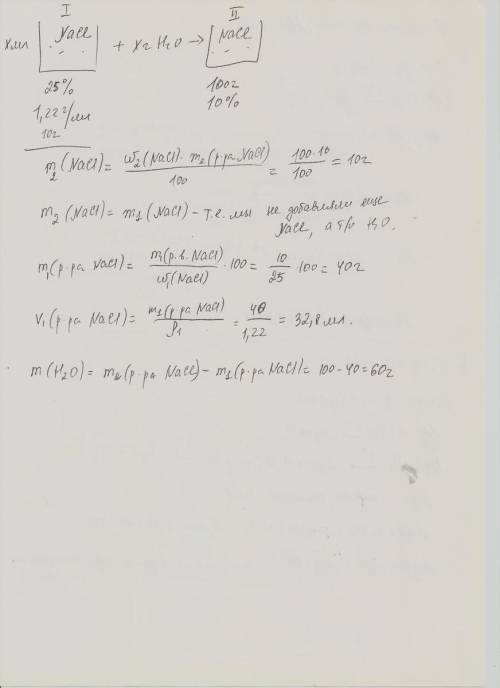 I II
x мл NaCl + x г H₂O → NaCl
25% 100г
1,22 г/мл 10%
10г
m₂(NaCl) = ω₂(NaCl)·m₂(р-ра NaCl)/100 = 100·10/100 = 10г
m₂(NaCl) = m₁(NaCl) – т.е. мы не добавляли еще
NaCl, а т/о H₂O.
m₁(р-ра NaCl) = m(р.в. NaCl)/ω₁(NaCl) · 100 = 10/25 · 100 = 40г
V₁(р-ра NaCl) = m₁(р-ра NaCl)/ρ₁ = 40/1,22 = 32,8 мл.
m(H₂O) = m₂(р-ра NaCl) – m₁(р-ра NaCl) = 100 – 40 = 60г